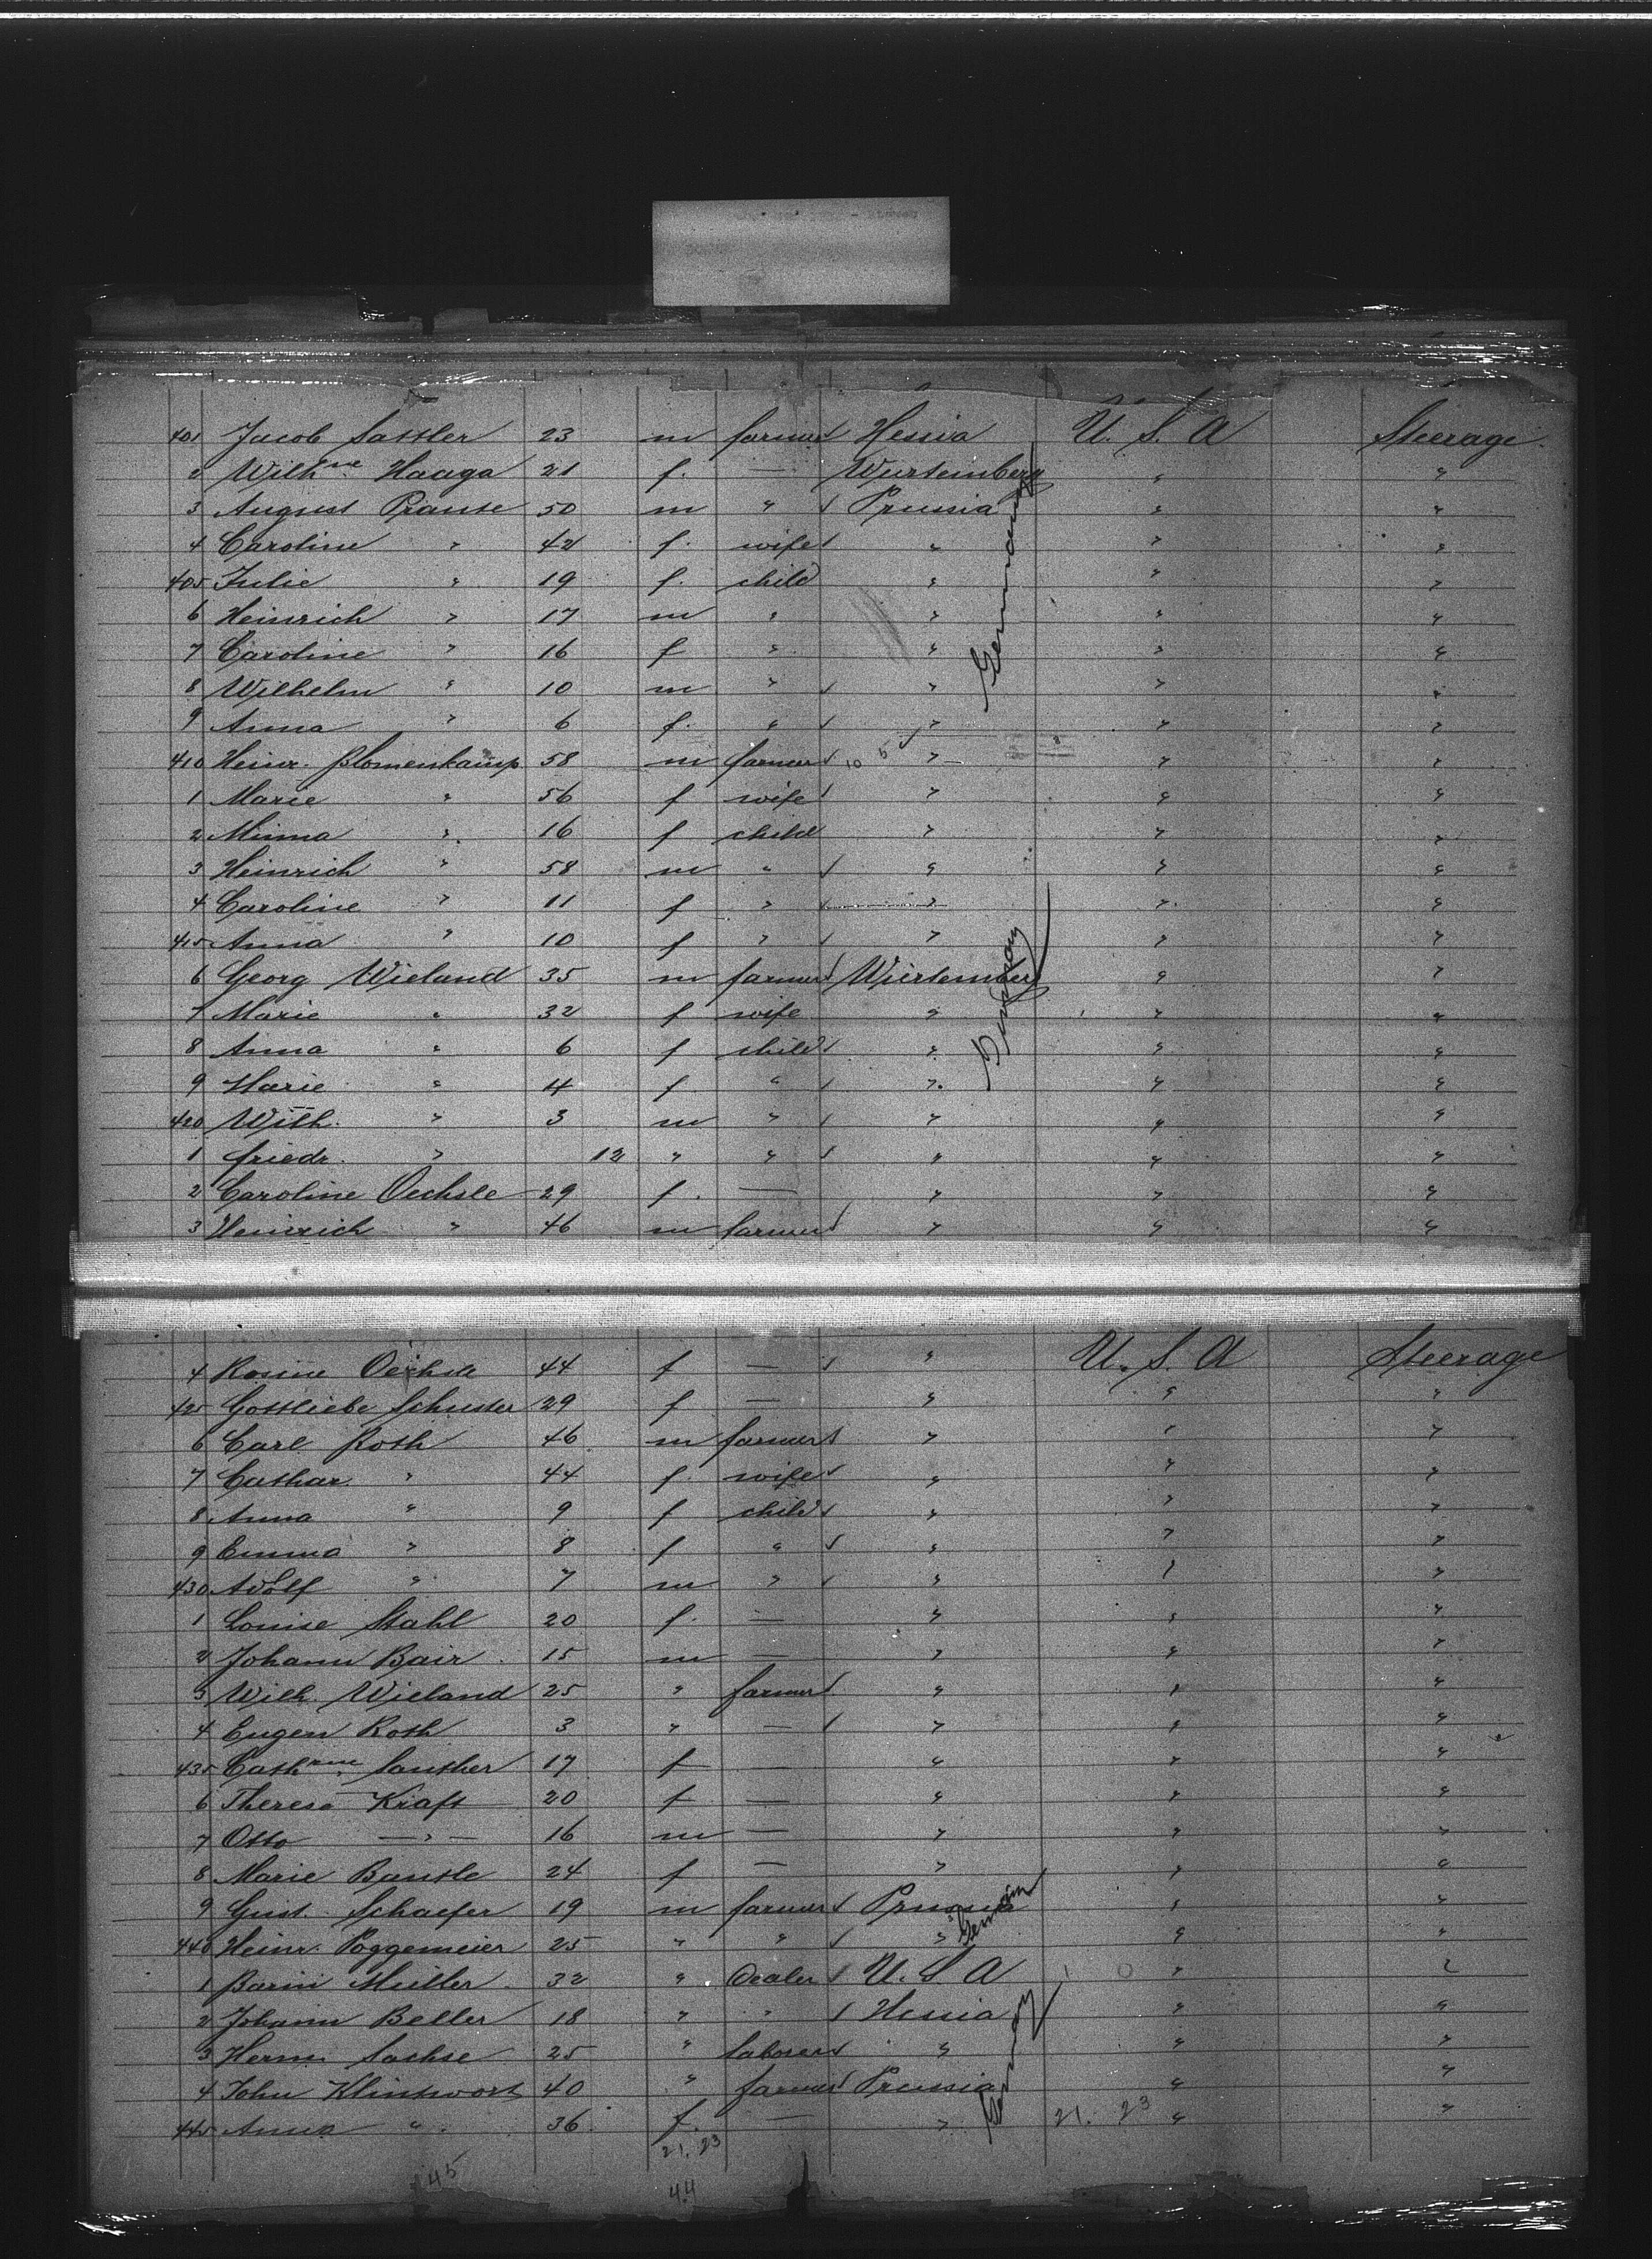 401 Jacob Sattler 23 m farmer Hessia U. S. A Steerage
2 Wilhne Haaga 21 f. — Wurtemberg " "
3 August Prause 50 m " Prussia " "
4 Caroline " 42 f. wife " " "
405 Julie " 19 f. child " " "
6 Heinrich " 17 m " " " "
7 Caroline " 16 f " " " "
8 Wilhelm " 10 m " " " "
9 Anna " 6 f. " " " "
410 Heinr. Blomenkamp 58 m farmer 10 5 " " "
1 Marie " 56 f wife " " "
2 Minna " 16 f child " " "
3 Heinrich " 58 m " " " "
4 Caroline " 11 f " " " "
415 Anna " 10 f " " " "
6 Georg Wieland 35 m farmer Würtemberg " "
7 Marie " 32 f wife " " "
8 Anna " 6 f child " " "
9 Marie " 4 f " " " "
420 Wilh. " 3 m " " " "
1 Friedr. " 12 " " " " "
2 Caroline Oechsle 29 f. — " " "
3 Heinrich " 46 m farmer " " "
Germany
Germany
4 Rosine Oechsle 44 f — " U. S. A Steerage
425 Gottliebe Schuster 29 f — " " "
6 Carl Roth 46 m farmer " " "
7 Cathar. " 44 f. wife " " "
8 Anna " 9 f child " " "
9 Emma " 8 f " " " "
430 Adolf " 7 m " " " "
1 Louise Stahl 20 f. — " " "
2 Johann Bair 15 m — " " "
3 Wilh. Wieland 25 " farmer " " "
4 Eugen Roth 3 " — " " "
435 Cathrine Santher 17 f — " " "
6 Therese Kraft 20 f — " " "
7 Otto — " — 16 m — " " "
8 Marie Bantle 24 f — " " "
9 Gust. Schaefer 19 m farmer Prussia " "
440 Heinr. Poggemeier 25 " " " " "
1 Müller 32 " Dealer U. S. A 1 0 " "
2 Johann Beller 18 " " Hessia " "
3 Herm. Sachse 25 " laborer " " "
4 John Klintwort 40 " farmer Prussia " "
445 Anna " 36 f. — " 21. 23 " "
German
Germany
21. 23
45
44